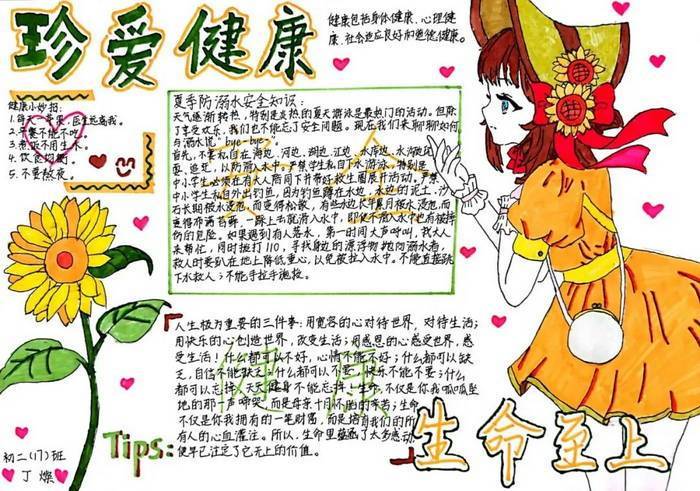 珍爱健康
健康包括身体健康、心理健
康、社会适应良好和道德健康。
健康小妙招:
1.每天一苹果,医生远离我。
2.早餐不能不吃。
3.煮饭不用生水。
4.饮食均衡。
5.不要熬夜。
夏季防溺水安全知识:
天气逐渐转热,特别是炎热的夏天游泳是最热门的活动。但除
了享受欢乐,我们也不能忘了安全问题。现在我们来聊聊如何
与溺水说"bye-bye"
首先,不要私自在海边、河边、湖边、江边、水库边、水沟
边、追赶,以防滑入水中。严禁学生私自下水游泳。特别是
中小学生必须在有大人陪同下并带好救生圈展开活动。严禁
中小学生私自外出钓鱼,因为钓鱼蹲在水边,水边的泥土、沙
石长期被水浸泡,而变得松散,有些水边长年累月被水浸泡而
重得布满苔藓,一踩上去就滑入水中,即使不滑入水中也有被摔
伤的危险。如果遇到有人落水,第一时间大声呼叫,找大人
来帮忙,同时拨打110,寻找身边的漂浮物抛向溺水者,
救人时要趴在地上降低重心,以免被拉入水中。不能直接跳
下水救人;不能手拉手施救。
人生极为重要的三件事:用宽容的心对待世界,对待生活;
用快乐的心创造世界,改变生活;用感恩的心感受世界,感
受生活!什么都可以不好,心情不能不好;什么都可以缺
乏,自信不能缺乏;什么都可以不要,快乐不能不要;什么
都可以忘掉,天天健身不能忘掉!生命,不仅是你我呱呱坠
地的那一声啼哭,而是母亲十月怀胎的辛苦;生命
不仅是你我拥有的一笔财富,而是培育我们的所
有人的心血灌注。所以,生命里蕴涵了太多感动,
便早已注定了它无上的价值。
健康
Tips:
初二(17)班
丁燦
生命至上